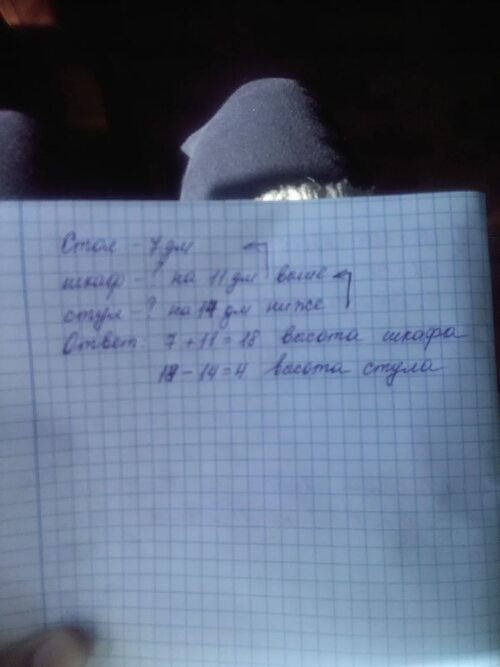 Стол - 7 дм
шкаф - ? на 11 дм выше
стул - ? на 14 дм ниже
Ответ: 7 + 11 = 18 высота шкафа
18 - 14 = 4 высота стула